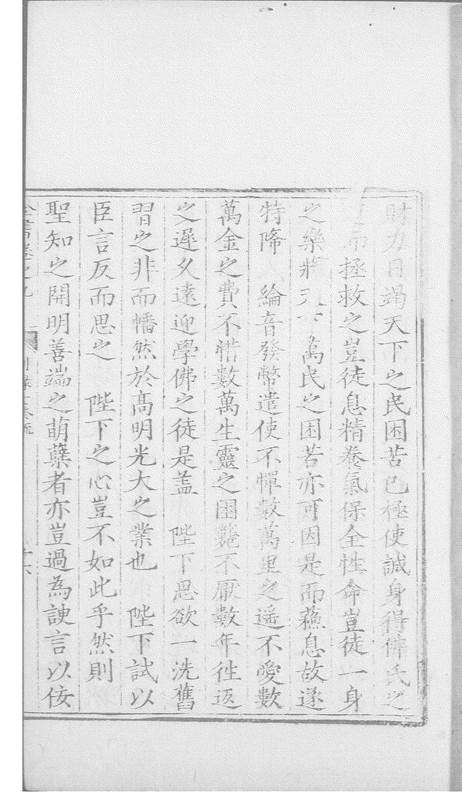 財力日竭天下之民困苦已極使誠身得佛氏之
而拯救之豈徒息精養氣保全性命豈徒一身
之樂將天下萬民之困苦亦可因是而蘇息故遂
特降 綸音發幣遣使不憚數萬里之遙不愛數
萬金之費不惜數萬生靈之困斃不厭數年徃返
之遲久遠迎學佛之徒是盖 陛下思欲一洗舊
習之非而幡然於髙明光大之業也 陛下試以
臣言反而思之 陛下之心豈不如此乎然則
聖知之開明善端之萌蘖者亦豈過為諛言以佞